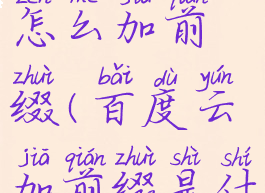 zěn me jiā qián
怎么加前
zhuì bǎi dù yún
缀(百度云
jiā qián zhuì shì shí
加前缀是什